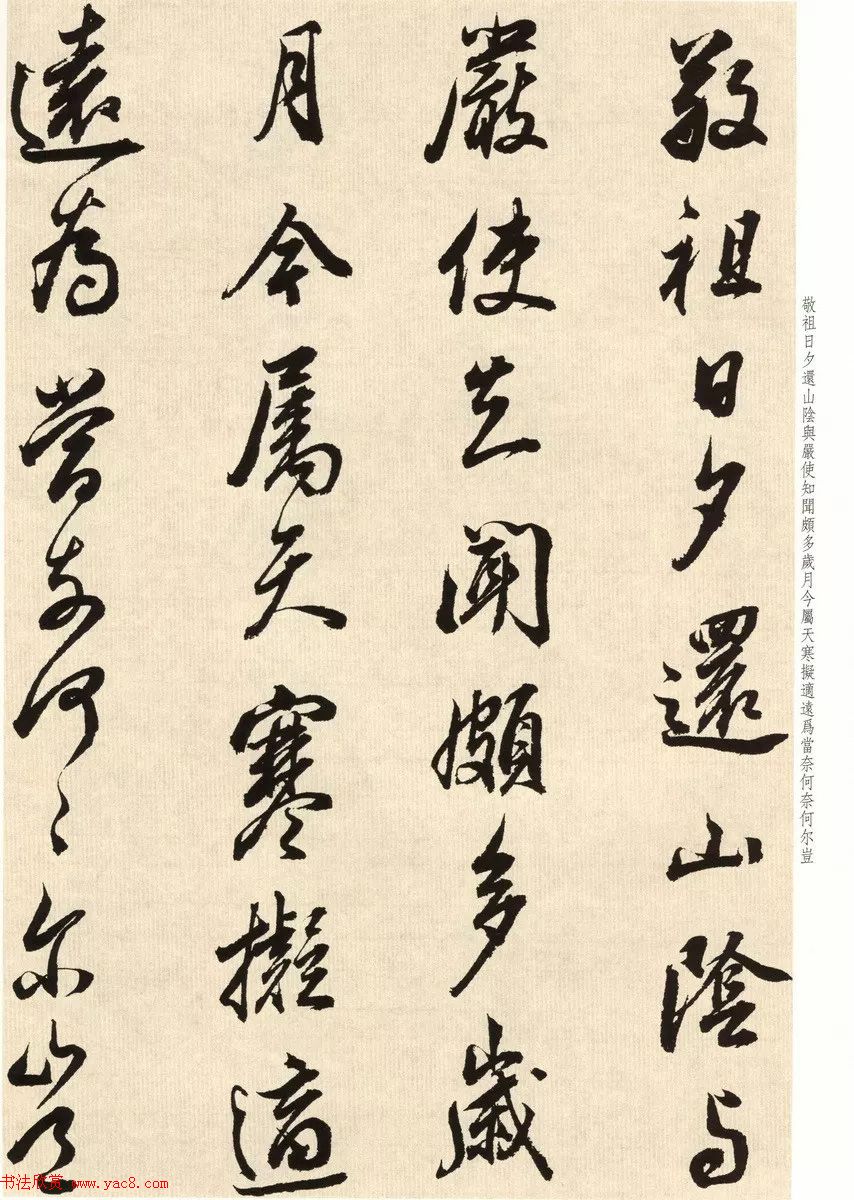 敬祖日夕還山陰与
嚴使知聞頗多歲
月今屬天寒擬適
遠為當奈何〻尔豈
敬祖日夕還山陰與嚴使知聞頗多歲月今屬天寒擬適遠爲當奈何奈何尔豈
书法欣赏 www.yac8.com